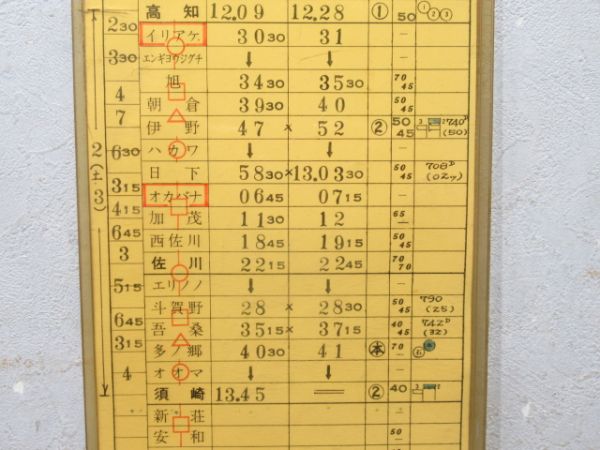 高知 12.09 12.28 ① 50 ①②③
2 30
イリアケ 30 30 31 —
3 30
エンギヨウジグチ ↓ ↓
旭 34 30 35 30 70 45
4
朝倉 39 30 40 50 45
7
伊野 47 × 52 ② 50 45 3 740D (50)
ハカワ ↓ ↓
6 30
日下 58 30 × 13.03 30 50 45 708D (02ッ)
3 15
オカバナ 06 45 07 15
4 15
加茂 11 30 12 65 —
6 45
西佐川 18 45 19 15 50 45
3
佐川 22 15 22 45 70 70
エリノノ ↓ ↓
5 15
斗賀野 28 × 28 30 50 45 790 (25)
6 45
吾桑 35 15 × 37 15 40 45 742D (32)
3 15
多ノ郷 40 30 41 本 70 — 6
オオマ ↓ ↓
4
須崎 13.45 == ② 40 3
新荘
安和 50 —
2(土.3)